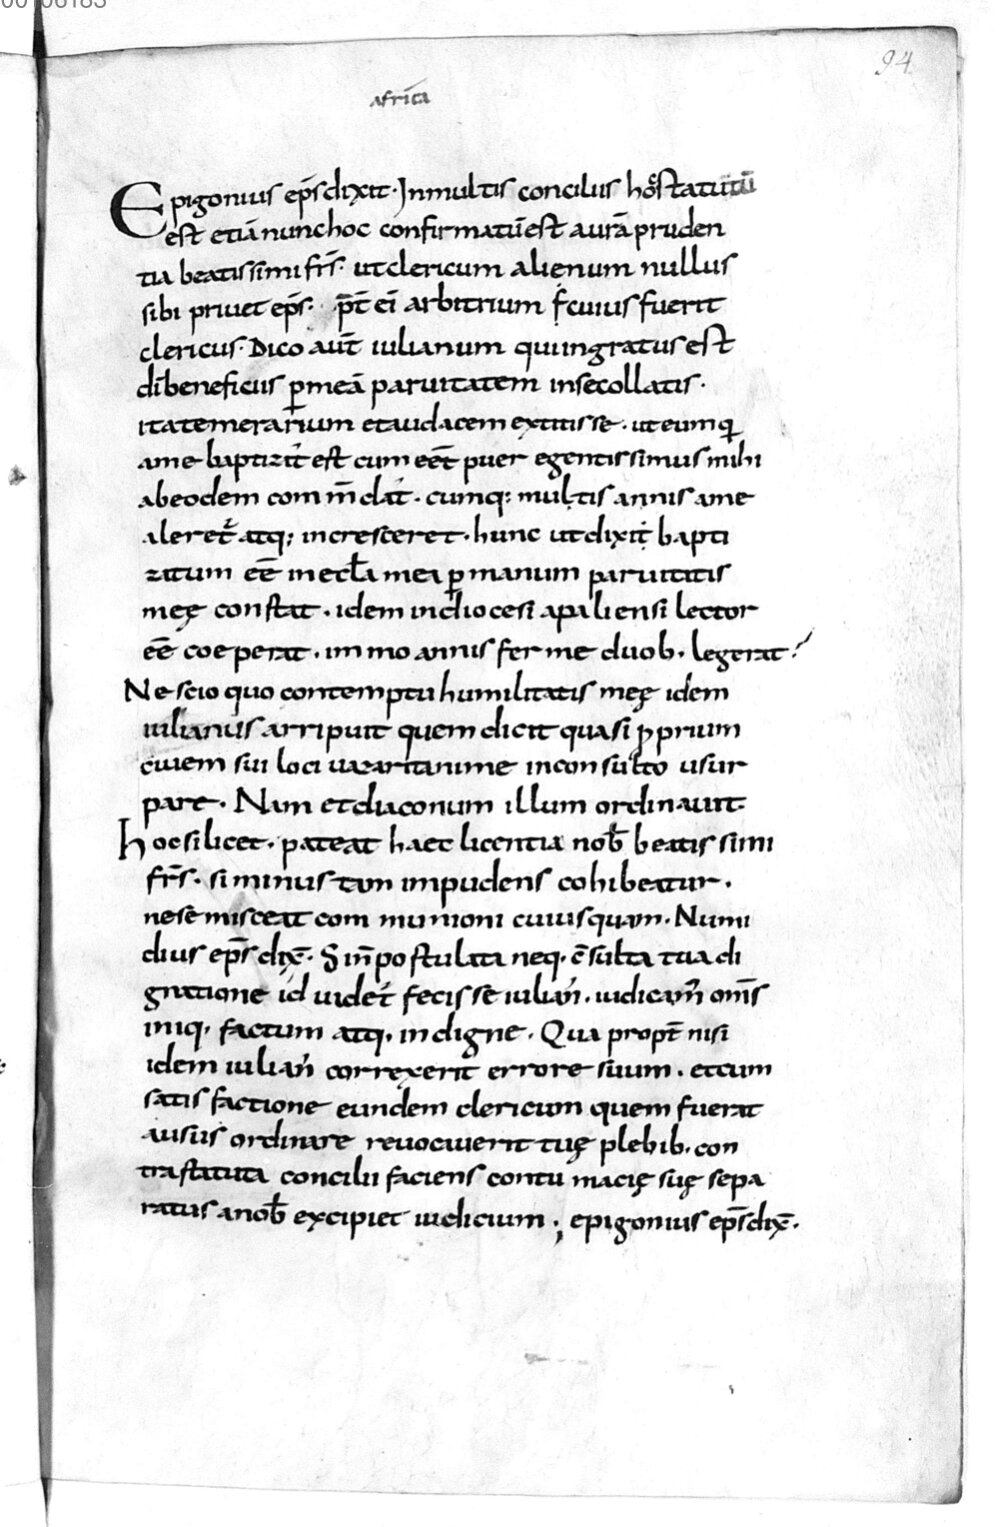 94
africa
Epigonius ep̄s dixit · In multis conciliis hoc statutū
est etiā nunc hoc confirmatū est a ur̄a pruden
tia beatissimi fr̄s · ut clericum alienum nullus
sibi priuet ep̄s · p̄t ei᷒ arbitrium cuius fuerit
clericus · Dico aūt iulianum qui ingratus est
dī beneficiis ꝑ meā paruitatem in se collatis ·
ita temerarium et audacem extitisse · ut eum q
a me baptizat᷒ est cum eēt puer egentissimus mihi
ab eodem commn̄dat᷒ · cumq; multis annis a me
aleret᷒ atq; incresceret · hunc ut dixi bapti
zatum eē in ecl̄a mea ꝑ manum paruitatis
meę constat · idem in diocesi apaliensi lector
eē coeperat · immo annis ferme duob · legerat
Nescio quo contemptu humilitatis meę idem
iulianus arripuit quem dicit quasi ꝓprium
ciuem sui loci uazaritanime inconsulto usur
pare · Nam et diaconum illum ordinauit
hoc si licet · pateat haec licentia nob̄ beatissimi
fr̄s · si minus tam impudens cohibeatur ·
ne se misceat communioni cuiusquam · Numi
dius ep̄s dix̄ · Si n̄ postulata neq · c̄sulta tua di
gnatione id uidet᷒ fecisse iulian᷒ · iudicam᷒ om̄s
iniq · factum atq · indigne · Qua propt̄ nisi
idem iulian᷒ correxerit errore suum · et cum
satisfactione eundem clericum quem fuerat
ausus ordinare reuocauerit tuę plebib · con
tra statuta concilii faciens contumacię suę sepa
ratus a nob̄ excipiet iudicium ; epigonius ep̄s dix̄ ·